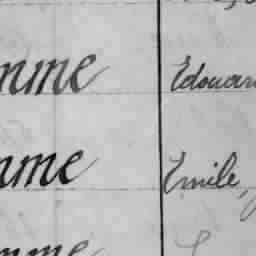 mme Edouar
mme Emile,
mme